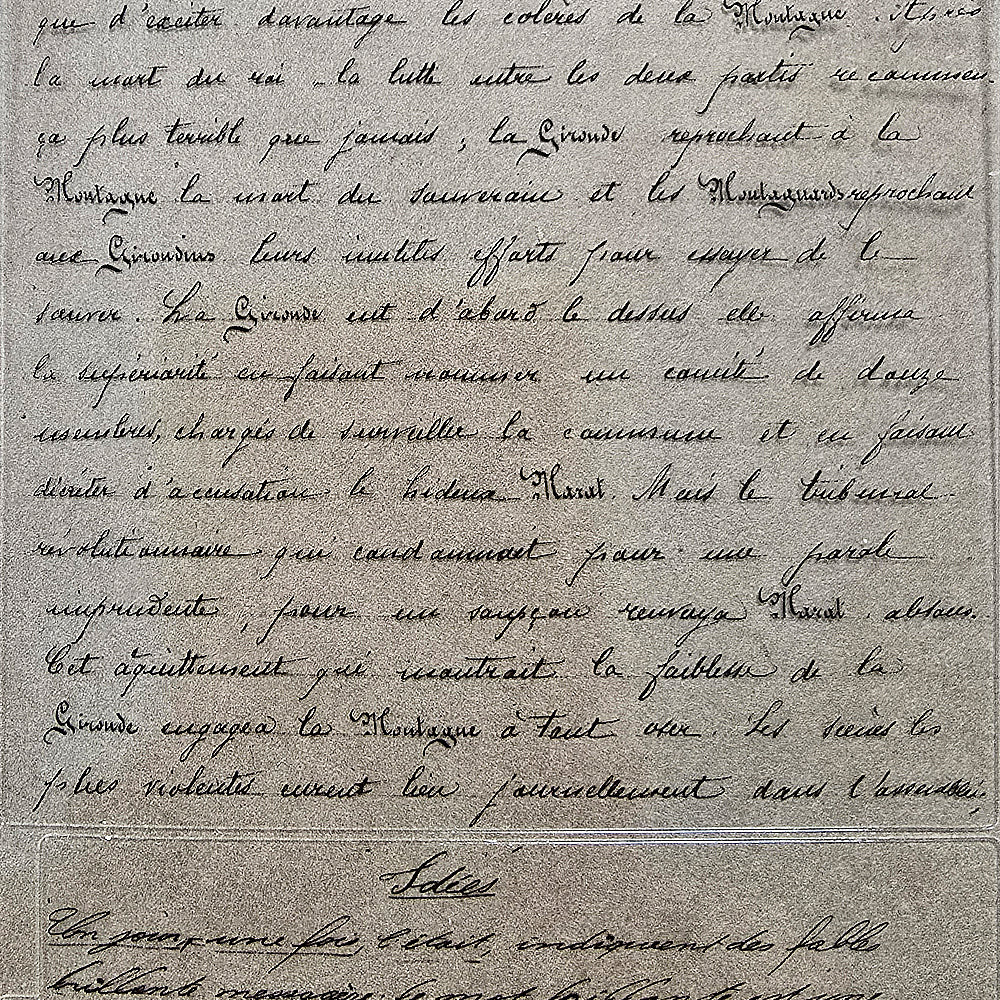 que d'exciter davantage les colères de la Montagne. Après
la mort du roi la lutte entre les deux partis recommen-
ça plus terrible que jamais, la Gironde reprochant à la
Montagne la mort du souverain et les Montagnards reprochant
aux Girondins leurs inutiles efforts pour essayer de le
sauver. La Gironde eut d'abord le dessus elle affirma
la supériorité en faisant nommer un comité de douze
membres, chargés de surveiller la commune et en faisant
décréter d'accusation le hideux Marat. Mais le tribunal
révolutionnaire qui condamnait pour une parole
imprudente, pour un soupçon renvoya Marat absous.
Cet aquittement qui montrait la faiblesse de la
Gironde engagea la Montagne à tout oser. Les scènes les
plus violentes eurent lieu journellement dans l'assemblée,
Idées
Un jour, une fois, c'était, indiquent des
brillante le mot brillante